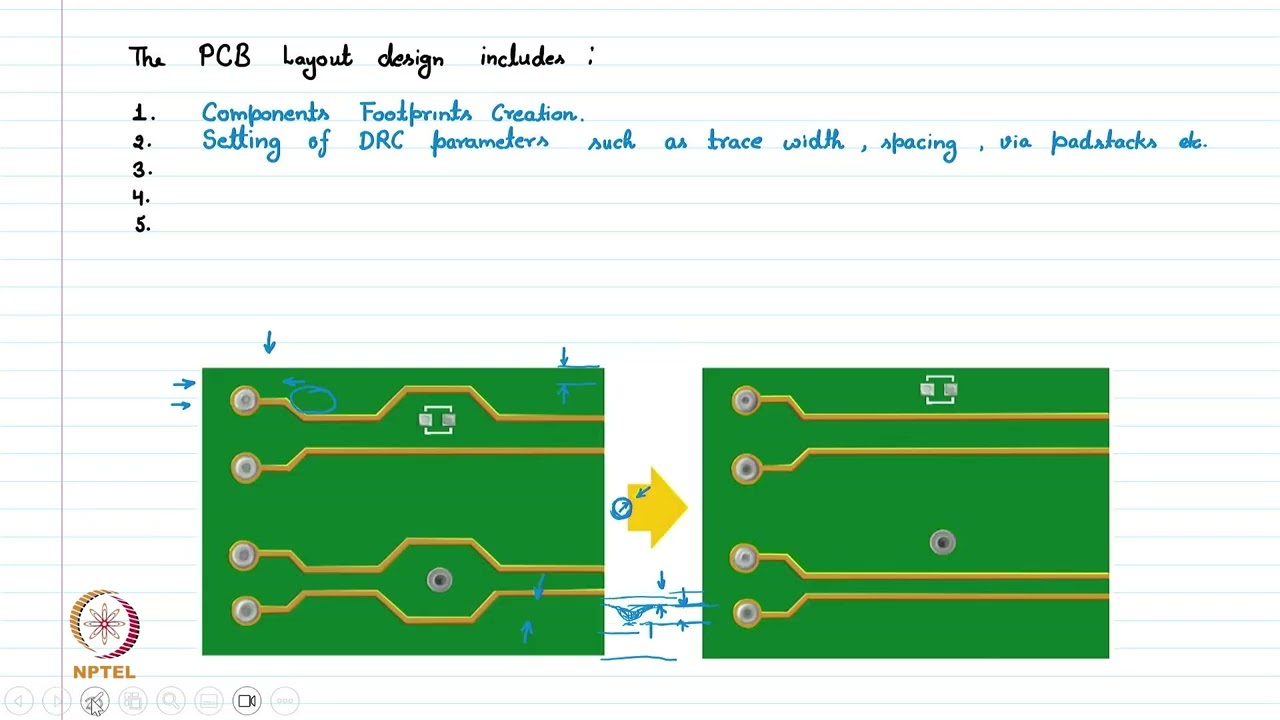 The PCB Layout design includes :
1. Components Footprints Creation.
2. Setting of DRC parameters such as trace width , spacing , via padstacks etc.
3.
4.
5.
NPTEL